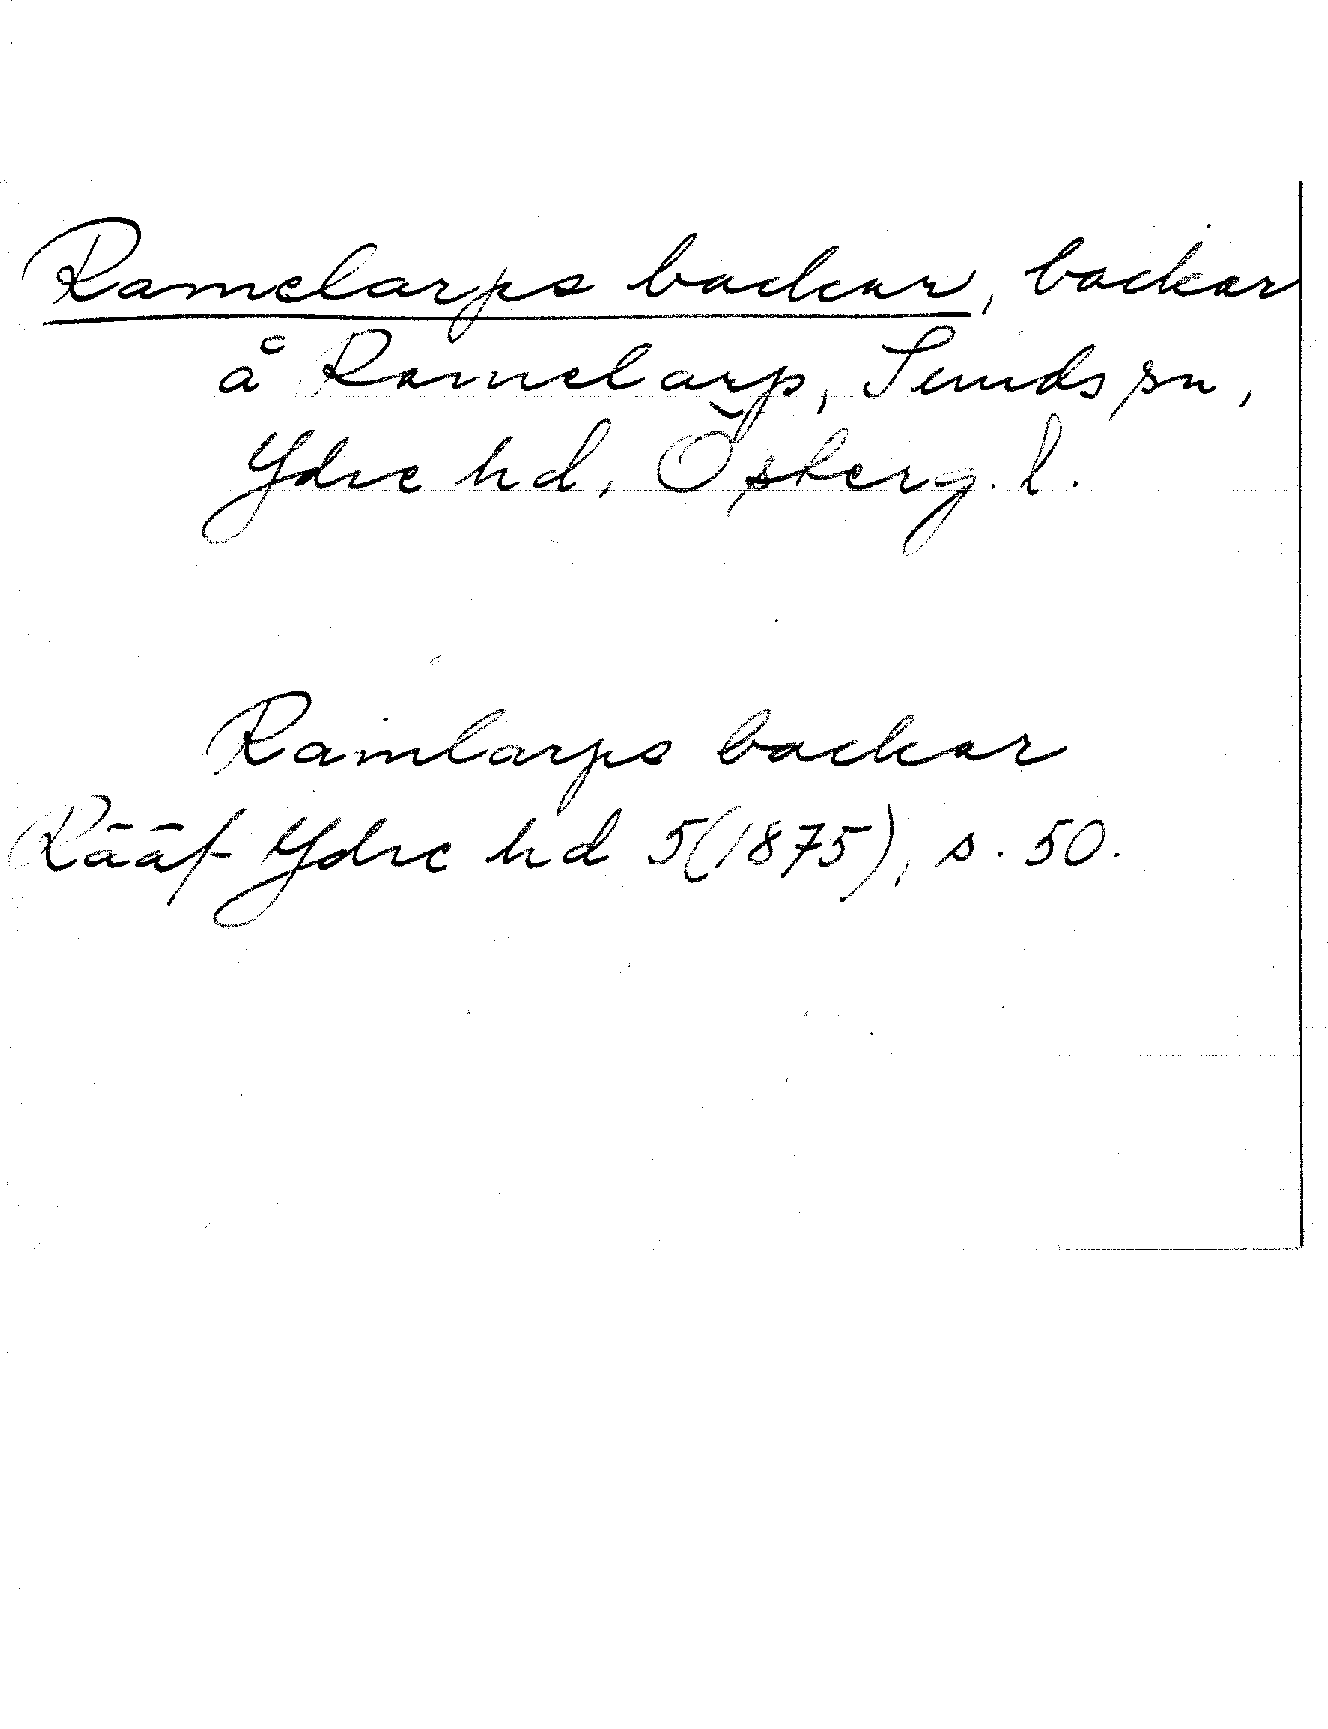 Ramelarps backar, backar
å Ramelarp, Sunds sn,
Ydre hd, Österg. l.
Ramlarps backar
Rääf Ydre hd 5(1875), s. 50.